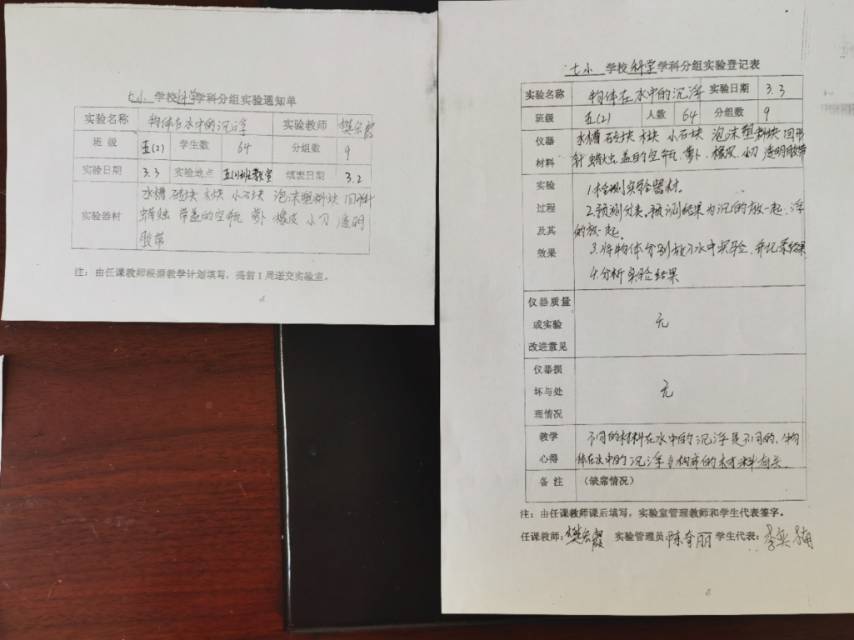 七小 学校科学学科分组实验通知单
实验名称 物体在水中的沉浮 实验教师
班级 五(2) 学生数 64 分组数 9
实验日期 3.3 实验地点 五(2)班教室 填表日期 3.2
实验器材 水槽 砖块 木块 小石块 泡沫塑料块 回形针
蜡烛 带盖的空瓶 萝卜 橡皮 小刀 透明
胶带
注：由任课教师根据教学计划填写，提前1周送交实验室。
七小 学校科学学科分组实验登记表
实验名称 物体在水中的沉浮 实验日期 3.3
班级 五(2) 人数 64 分组数 9
仪器 水槽 砖块 木块 小石块 泡沫塑料块 回形
材料 针 蜡烛 盖的空瓶 萝卜 橡皮 小刀 透明胶带
实验 1.检测实验器材.
过程 2.预测分类。预测结果为沉的放一起，浮
及其 的放一起。
效果 3.将物体分别放入水中实验，并记录结果
4.分析实验结果
仪器质量
或实验 无
改进意见
仪器损
坏与处 无
理情况
教学 不同的材料在水中的沉浮是不同的，物
心得 体在水中的沉浮与构成的材料有关。
备注 （缺席情况）
注：由任课教师课后填写，实验室管理教师和学生代表签字。
任课教师： 实验管理员： 学生代表：